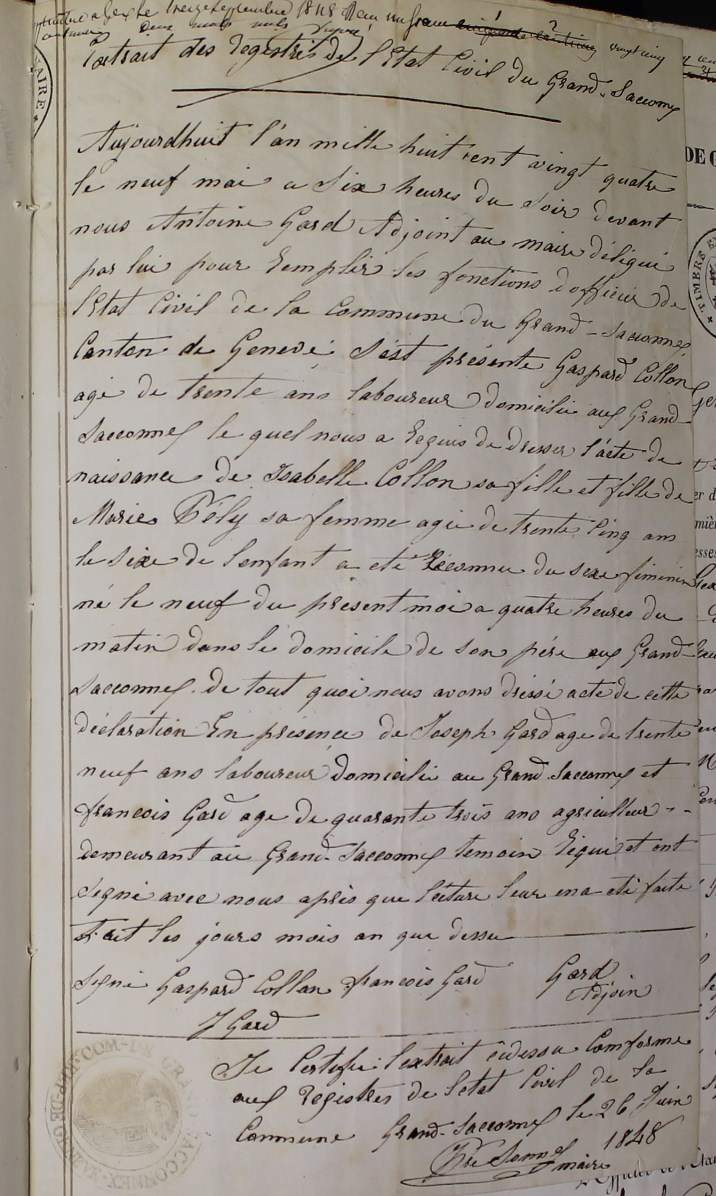 treize septembre 1848 vingt cinq
Extrait des Registres de l'Etat Civil du Grand-Sacconnex
Aujourdhuit l'an mille huit cent vingt quatre
le neuf mai a Six heures du Soir devant
nous Antoine Gard Adjoint au maire déligué
par lui pour Remplir les fonctions d'officier de
l'Etat Civil de la Commune du Grand-Sacconnex
Canton de Genève S'est présenté Gaspard Collon
agé de trente ans laboureur domicilié aux Grand-
Sacconnex le quel nous a Requis de Dresser l'acte de
naissance de Isabelle Collon sa fille et fille de
Marie Pély sa femme agée de trente Cinq ans
le Sixe de l'enfant a eté Réconnu du sexe féminin
né le neuf du présent moi a quatre heures du
matin dans le domicile de Son père aux Grand-
Sacconnex. de tout quoi nous avons dréssé acte de cette
déclaration En présence de Joseph Gard age de trente
neuf ans laboureur domicilié au Grand Sacconnex et
francois Gard age de quarante trois ans agriculteur
demeurant au Grand-Sacconnex temoin Réquis et ont
Signé avec nous après que lecture leur en a eté faite
Fait les jours mois an que dessu
Signé Gaspard Collon francois Gard Gard
J Gard Adjoin
Je Certifie l'extrait cidessu Comforme
aux Registres de l'etat Civil de la
Commune Grand-Sacconnex le 26 Juin
1848
maire